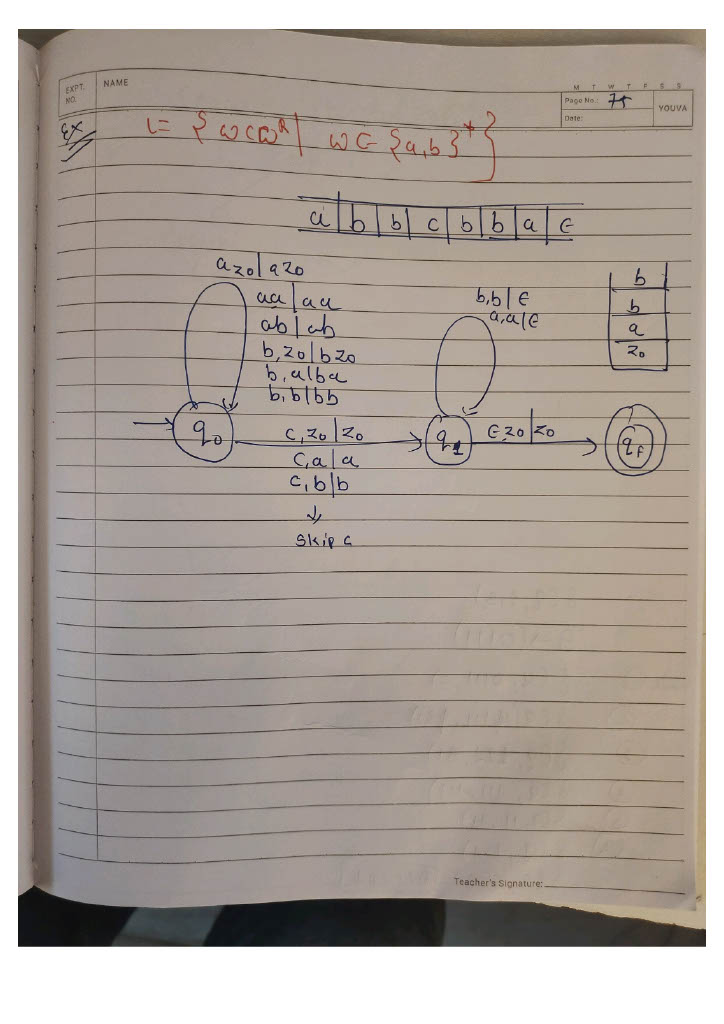 EXPT. NO.
NAME
M T W T F S S
Page No.: 75
Date:
YOUVA
Ex
L= { wcw^R | w ∈ {a,b}^* }
a | b | b | c | b | b | a | ε
a z0 | a z0
aa | aa
ab | ab
b, z0 | b z0
b, a | ba
b, b | bb
b, b | ε
a, a | ε
b
b
a
z0
q0
c, z0 | z0
c, a | a
c, b | b
q1
ε, z0 | z0
qf
skip c
Teacher's Signature: